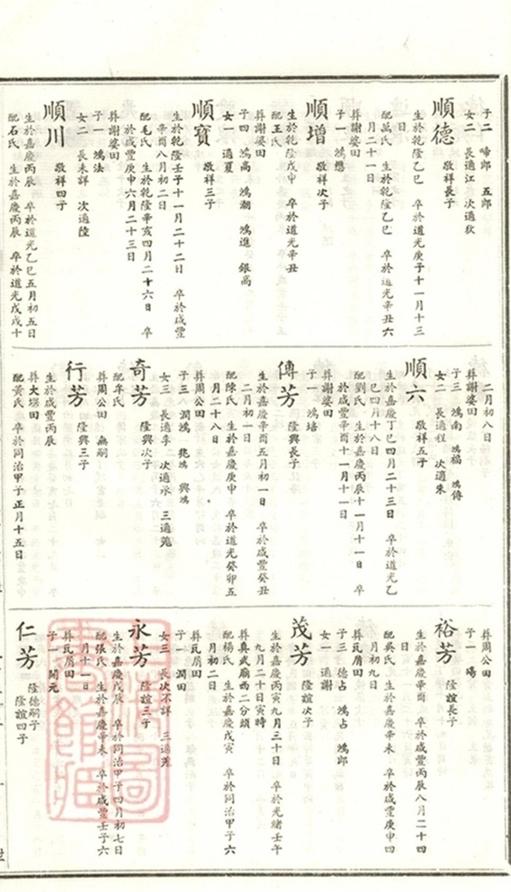 子二 啼郎 五郎
女二 長適江 次適狄
順德 敬祥長子
生於乾隆乙巳 卒於道光庚子十一月十三
日
配萬氏 生於乾隆乙巳 卒於道光辛丑六
月二十一日
葬謝婆田
子一 鴻懋
順增 敬祥次子
生於乾隆戊申 卒於道光辛丑
配王氏
葬謝婆田
子四 鴻高 鴻潮 鴻進 銀高
女一 適夏
順寶 敬祥三子
生於乾隆壬子十一月二十二日 卒於咸豐
辛酉八月初二日
配毛氏 生於乾隆辛亥四月二十六日 卒
於咸豐庚申六月二十三日
葬謝婆田
子一 鴻法
女二 長未詳 次適陸
順川 敬祥四子
生於嘉慶丙辰 卒於道光乙巳五月初五日
配石氏 生於嘉慶丙辰 卒於道光戊戌十
二月初八日
葬謝婆田
子三 鴻南 鴻福 鴻傳
女二 長適程 次適朱
順六 敬祥五子
生於嘉慶丁巳四月二十三日 卒於道光乙
巳四月十八日
配劉氏 生於嘉慶丙辰十一月十一日 卒
於咸豐辛酉十一月十一日
葬謝婆田
子一 鴻培
傳芳 隆興長子
生於嘉慶辛酉五月初一日 卒於咸豐癸丑
二月初一日
配陳氏 生於嘉慶庚申 卒於道光癸卯五
月二十八日
葬周公田
子三 潤鴻 兆鴻 興鴻
女三 長適李 次適承 三適
奇芳 隆興次子
配牟氏
葬周公田 無嗣
行芳 隆興三子
生於咸豐丙辰
葬大塝田
配黃氏 卒於同治甲子正月十五日
葬周公田
子一 陽
裕芳 隆誼長子
生於嘉慶辛酉 卒於咸豐丙辰八月二十四
日
配吳氏 生於嘉慶辛未 卒於咸豐庚申四
月初九日
葬瓦屑田
子三 德占 鴻占 鴻郎
女一 適謝
茂芳 隆誼次子
生於嘉慶丙寅九月三十日 卒於光緒壬午
九月二十日寅時
葬真武廟西二分頭
配楊氏 生於嘉慶戊寅 卒於同治甲子六
月初二日
葬瓦屑田
子一 潤田
女三 長次不詳 三適
永芳 隆誼三子
生於嘉慶戊辰 卒於同治甲子四月初七日
配張氏 生於嘉慶辛未 卒於咸豐壬子六
月十一日
葬瓦屑田
子一 開元
仁芳 隆德嗣子
隆誼四子